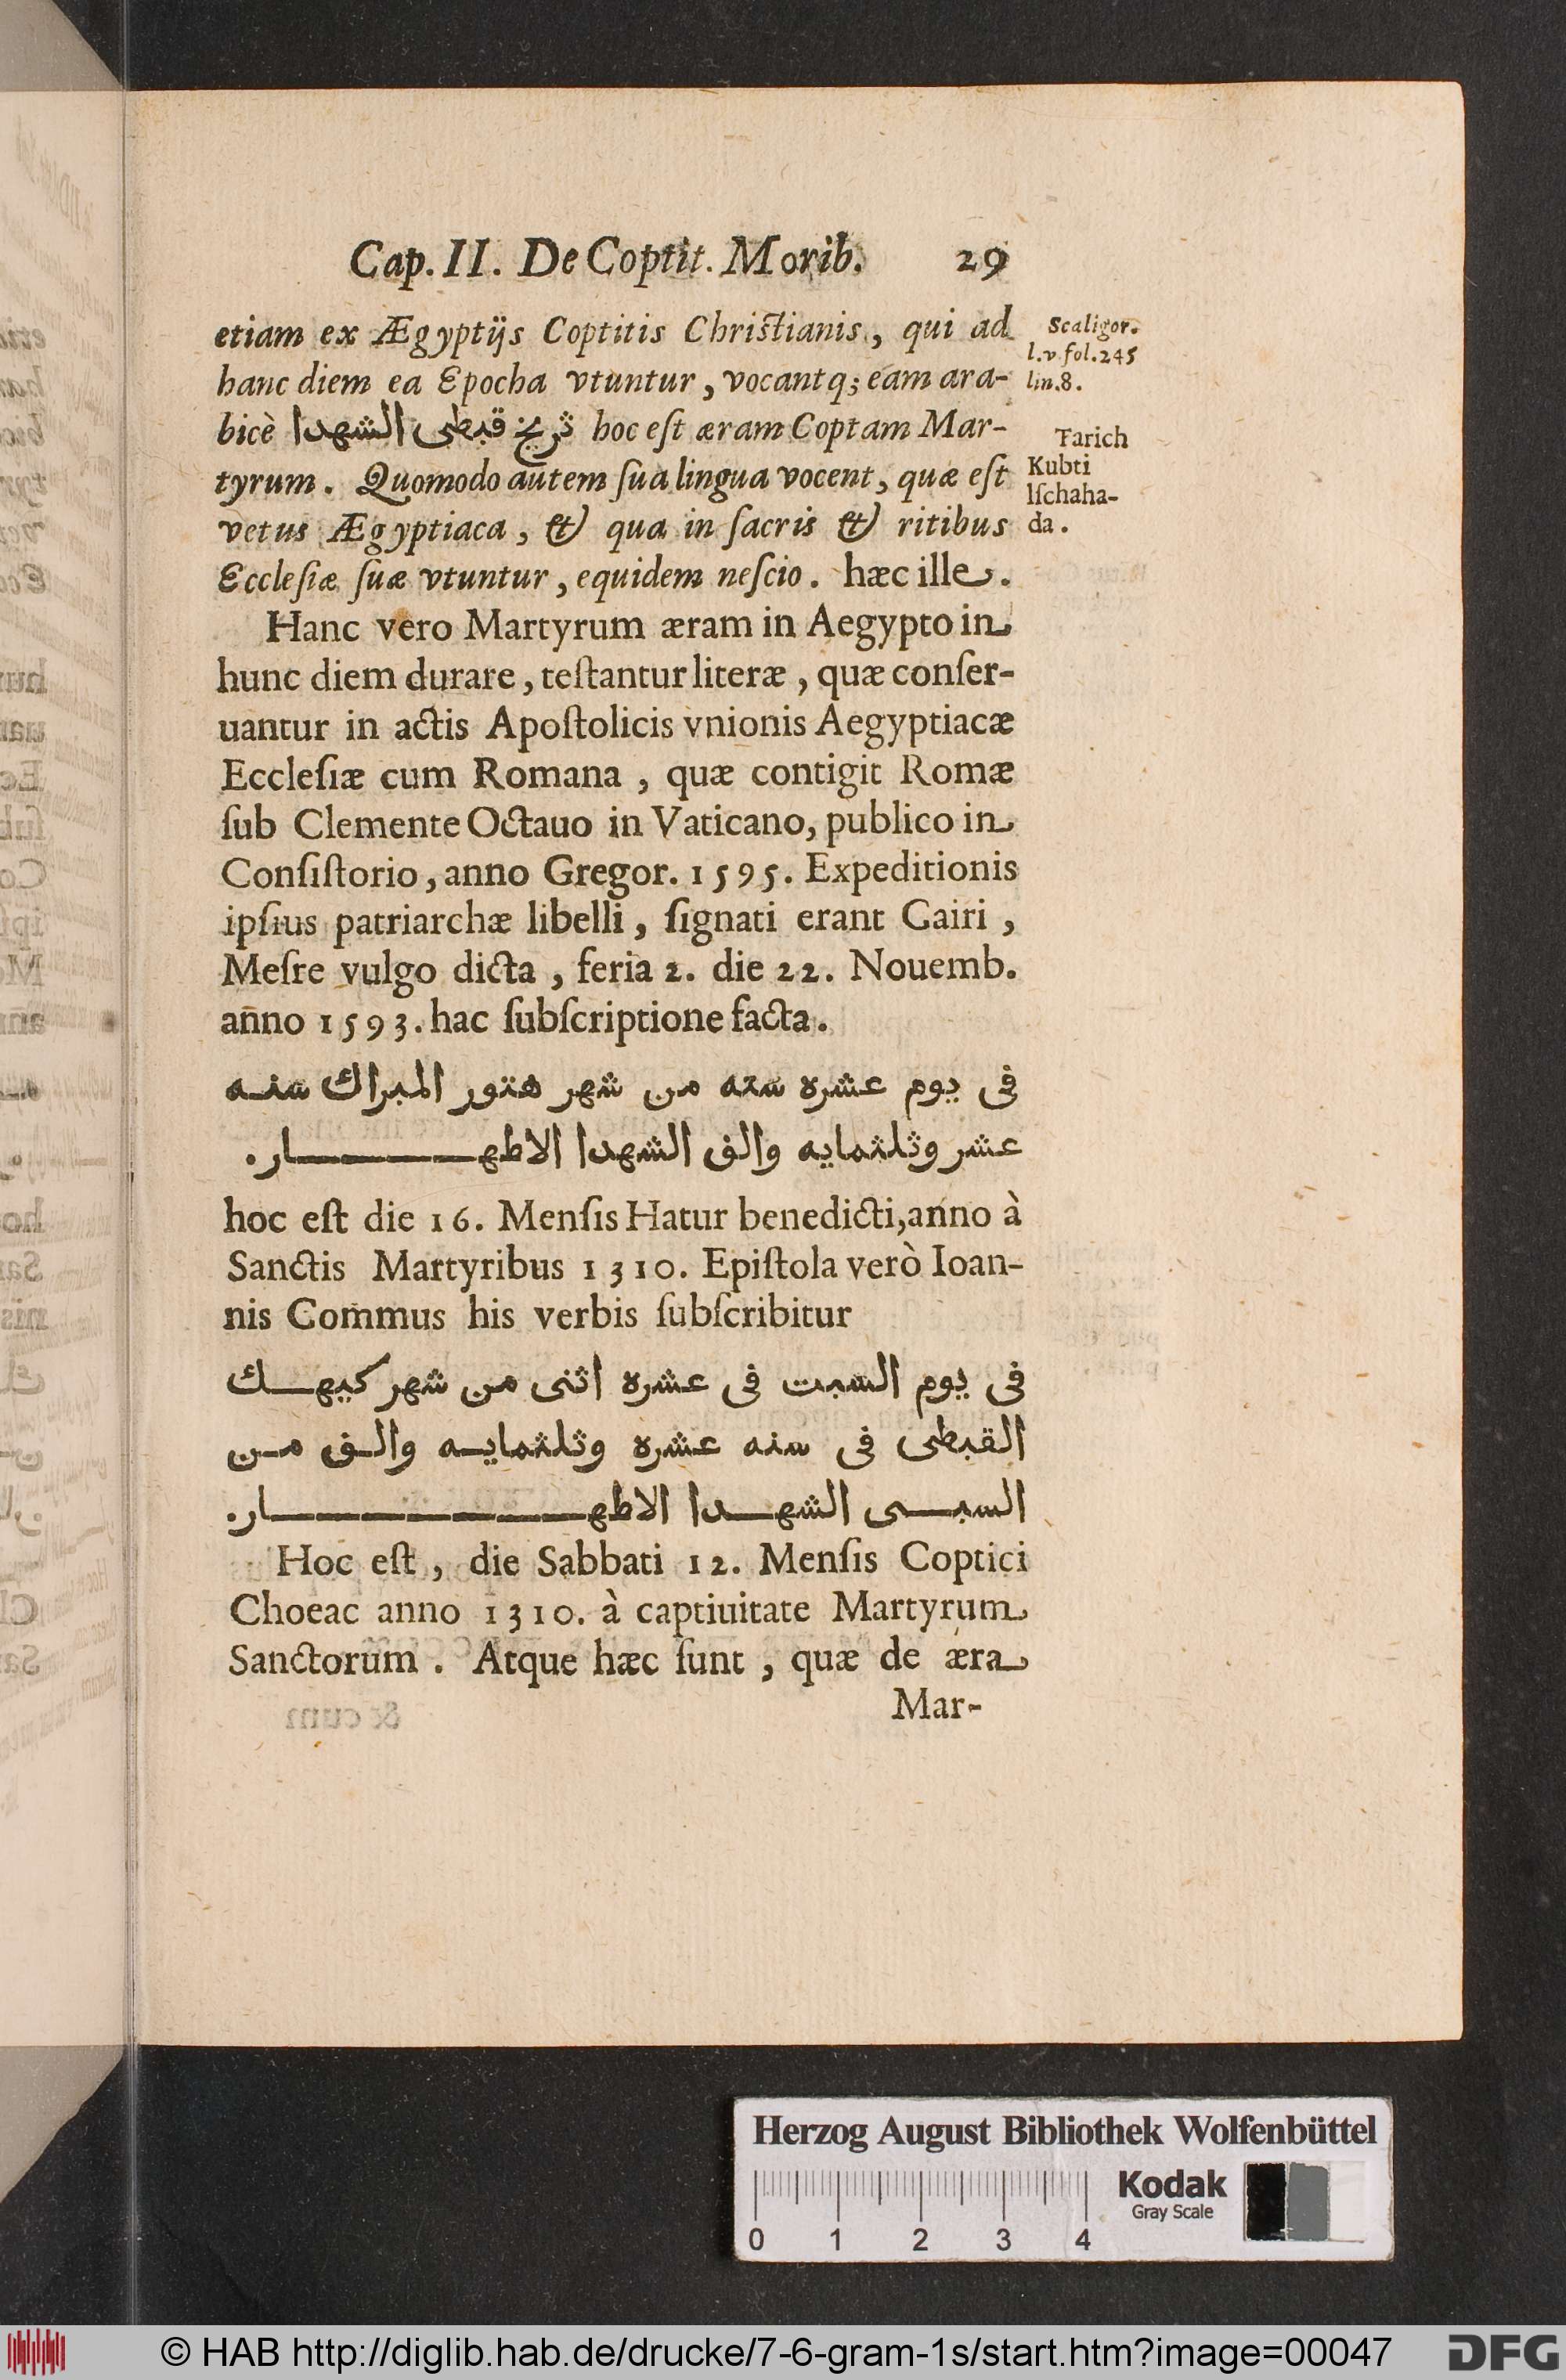 Cap. II. De Coptit. Morib. 29
etiam ex Ægyptijs Coptitis Christianis, qui ad
hanc diem ea Epocha vtuntur, vocantq; eam ara-
bicè ثريخ قبطى الشهدا hoc eſt æram Coptam Mar-
tyrum. Quomodo autem ſua lingua vocent, quæ eſt
vetus Ægyptiaca, & qua in ſacris & ritibus
Eccleſiæ ſuæ vtuntur, equidem neſcio. hæc ille.
Scaligor.
l.v fol.245
lin.8.
Tarich
Kubti
lſchaha-
da.
Hanc vero Martyrum æram in Aegypto in
hunc diem durare, teſtantur literæ, quæ conſer-
uantur in actis Apoſtolicis vnionis Aegyptiacæ
Eccleſiæ cum Romana, quæ contigit Romæ
ſub Clemente Octauo in Vaticano, publico in
Conſiſtorio, anno Gregor. 1595. Expeditionis
ipſius patriarchæ libelli, ſignati erant Cairi,
Meſre vulgo dicta, feria 2. die 22. Nouemb.
añno 1593. hac ſubſcriptione facta.
فى يوم عشره سته من شهر هتور المبراك سنه
عشر وثلثمايه والف الشهدا الاطهـــــــار.
hoc eſt die 16. Menſis Hatur benedicti, anno à
Sanctis Martyribus 1310. Epiſtola verò Ioan-
nis Commus his verbis ſubſcribitur
فى يوم السبت فى عشره اثنى من شهر كيهـــك
القبطى فى سنه عشره وثلثمايـه والـف مـن
السبـــى الشهـــدا الاطهـــــــــار.
Hoc eſt, die Sabbati 12. Menſis Coptici
Choeac anno 1310. à captiuitate Martyrum
Sanctorum. Atque hæc ſunt, quæ de æra
Mar-
Herzog August Bibliothek Wolfenbüttel
Kodak
Gray Scale
0 1 2 3 4
© HAB http://diglib.hab.de/drucke/7-6-gram-1s/start.htm?image=00047
DFG